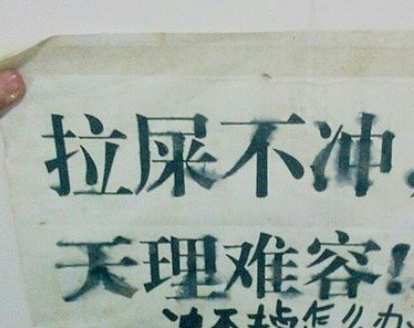 拉屎不冲，
天理难容!!
冲不掉怎么办